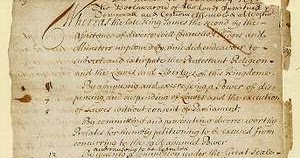 The Declaracon of the Lords Spirituall &
Temporall and Comons Assembled at
Whereas the late King James the second by the
Assistance of diverse evill Councellors Judges and
Ministers imployed by him did endeavour to
subvert and extirpate the Protestant Religion
and the Lawes and Libertyes of this Kingdome
By assumeing and exerciseing a Power of dis=
pensing with and suspending of Lawes and the execution
of Lawes without consent of Parliament.
By committing and prosecuting diverse worthy
Prelates for humbly petitioning to be excused from
concurring to the said assumed Power
Commission under the Great Seale